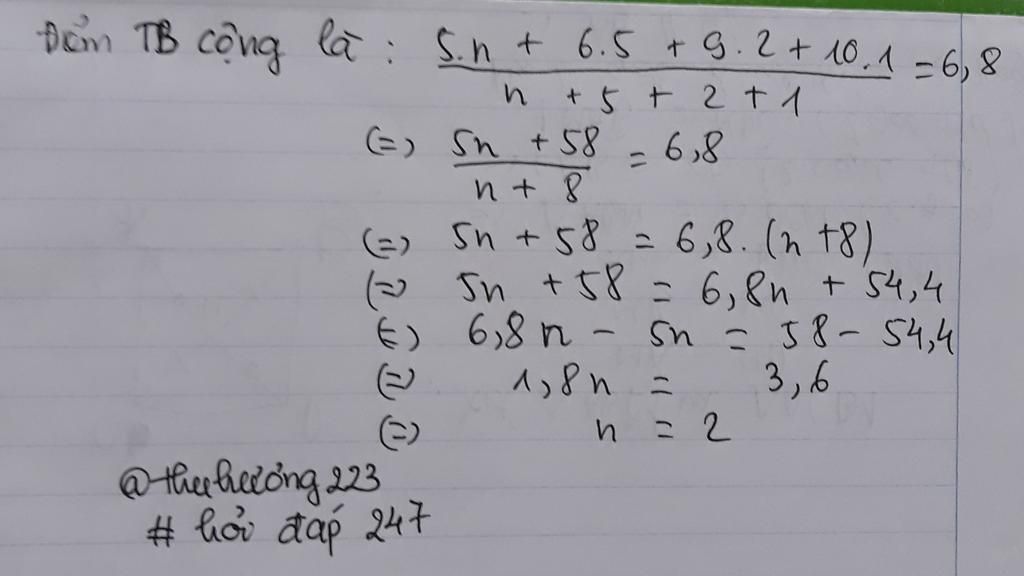 Điểm TB cộng là : 5.n + 6.5 + 9.2 + 10.1 / n + 5 + 2 + 1 = 6,8
(=) 5n + 58 / n + 8 = 6,8
(=) 5n + 58 = 6,8. (n +8)
(=) 5n + 58 = 6,8n + 54,4
(=) 6,8n - 5n = 58 - 54,4
(=) 1,8n = 3,6
(=) n = 2
@thuhương223
# hỏi đáp 247